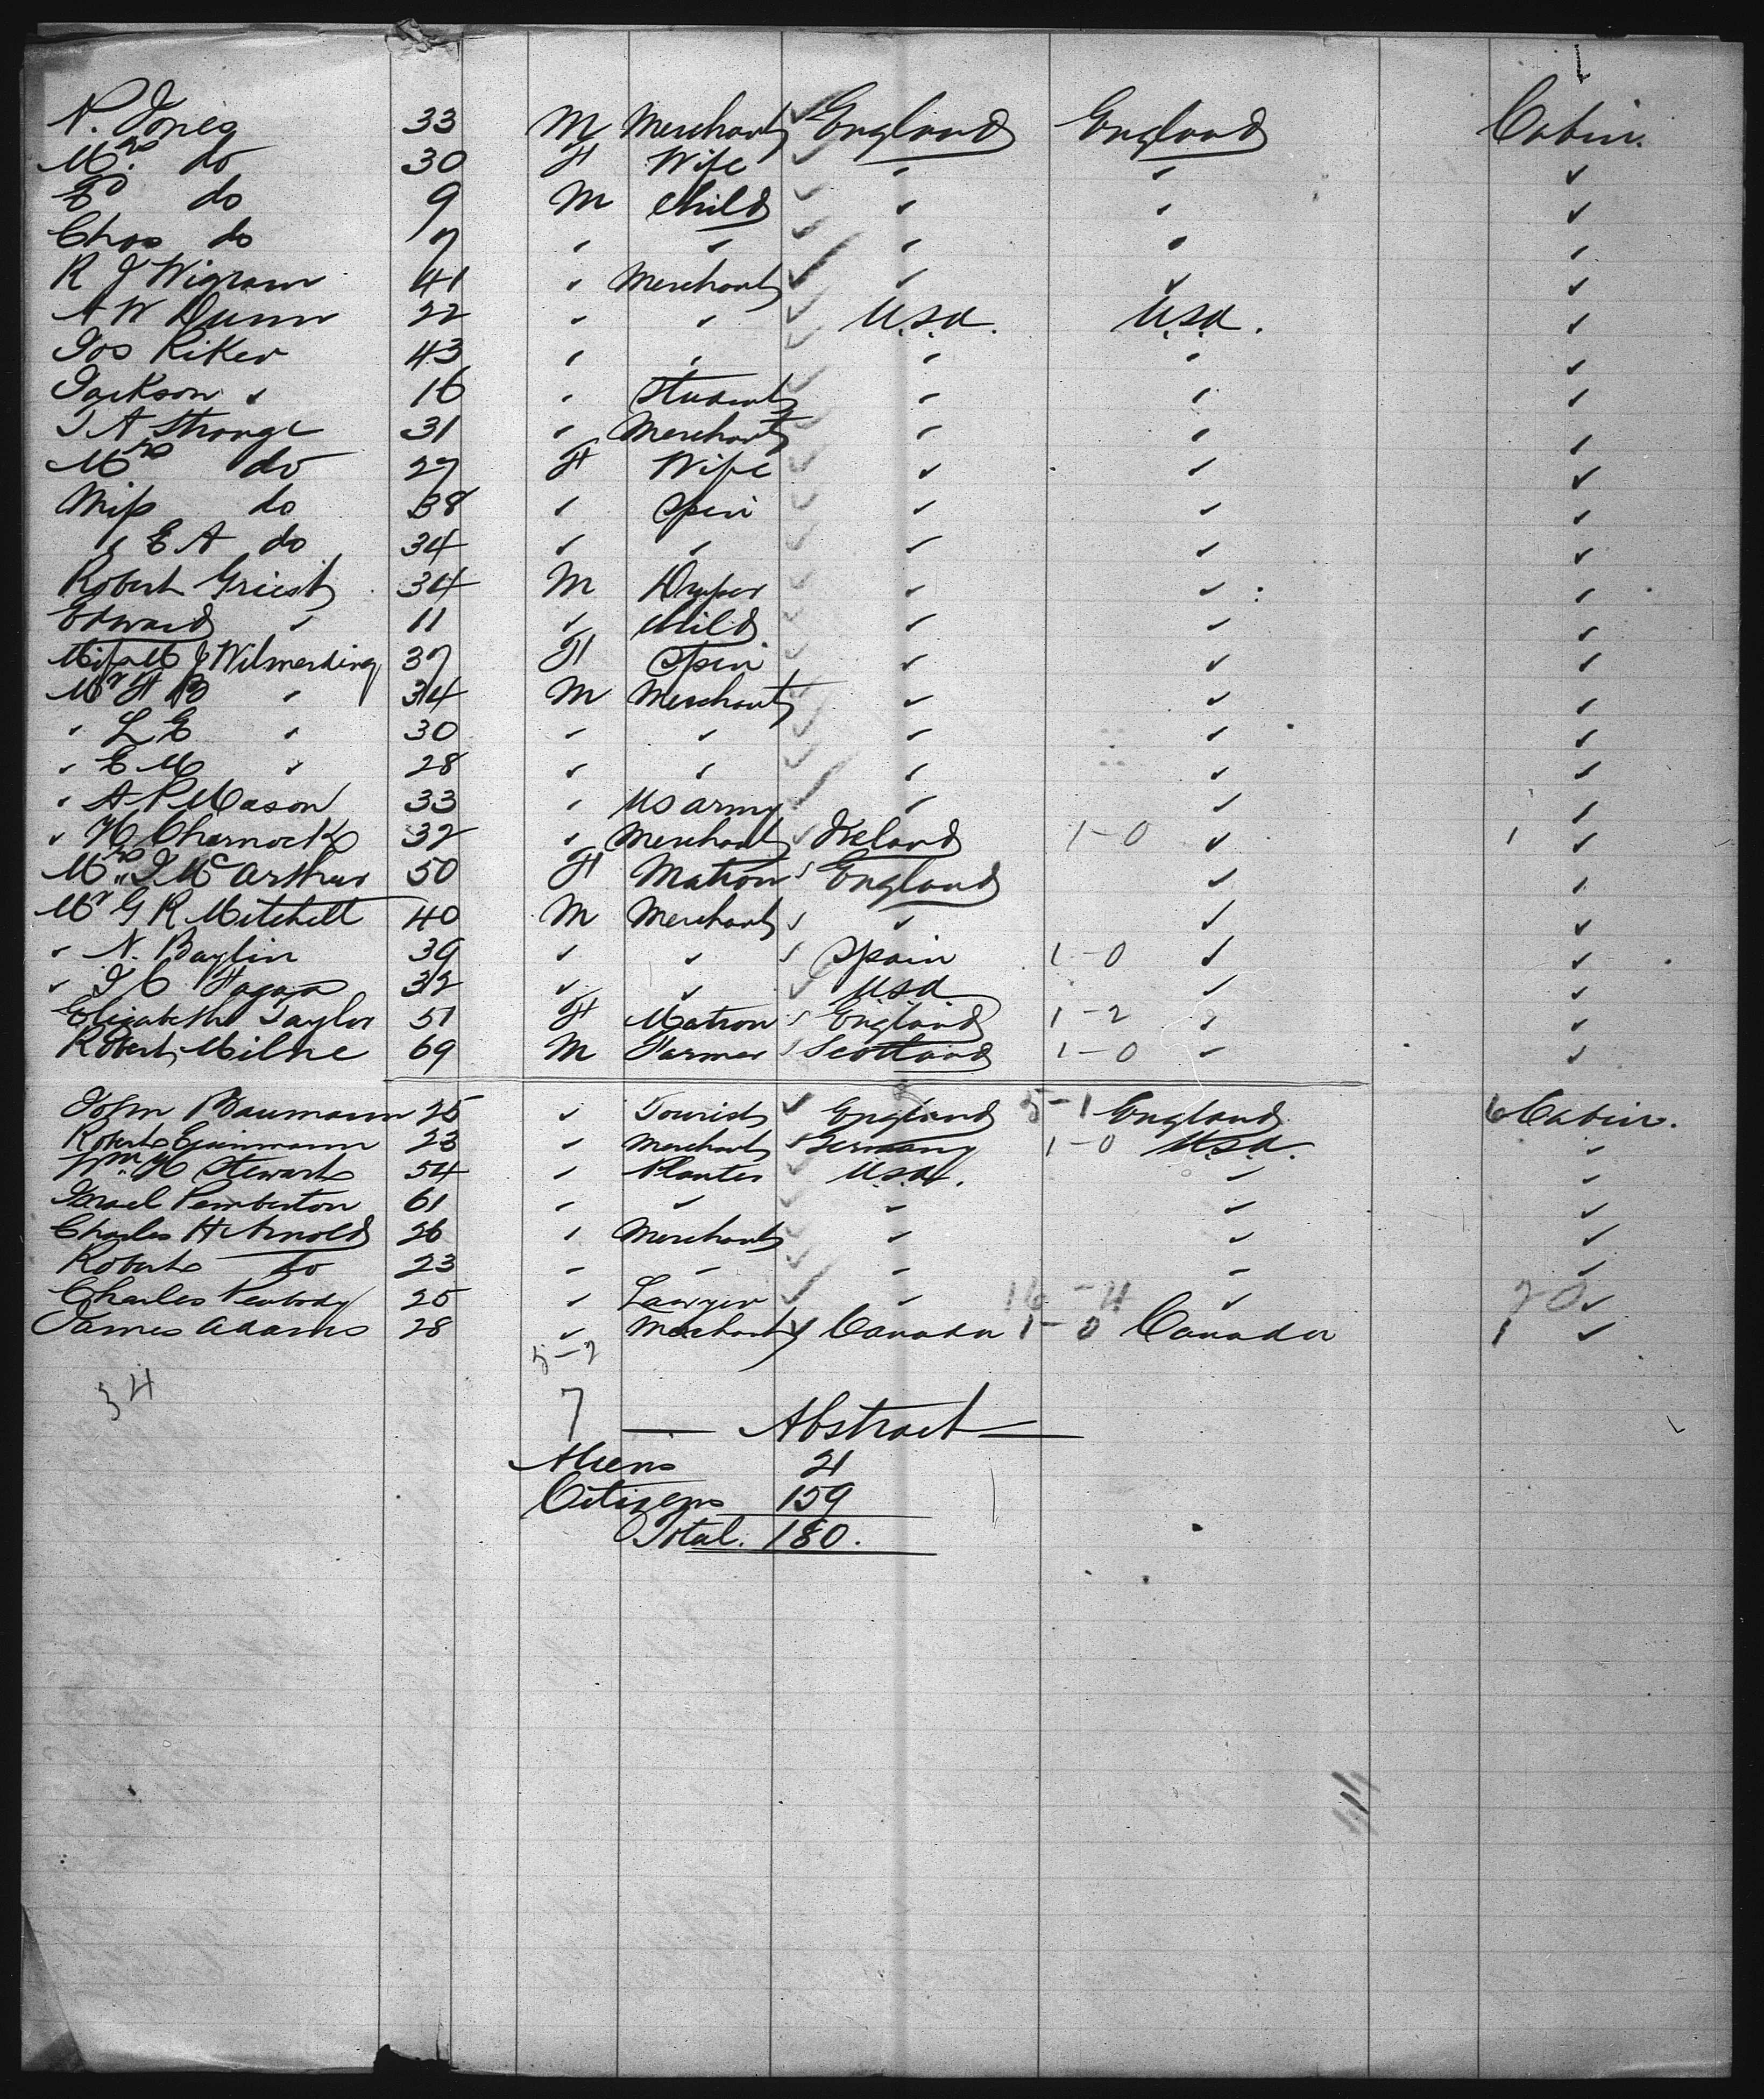 N. Jones 33 M Merchant England England Cabin.
Mrs. do 30 F Wife " " "
Ed do 9 M Child " " "
Chas do 7 " " " " "
R J Wigram 41 " Merchant " " "
A W Dunn 22 " " U.S.A. U.S.A. "
Jos Riker 43 " " " " "
Jackson " 16 " Student " " "
T A Strange 31 " Merchant " " "
Mrs do 27 F Wife " " "
Miss do 38 " Spin " " "
" E A do 34 " " " " "
Robert Griest 34 M Draper " " "
Edward " 11 " Child " " "
Miss M J Wilmerding 37 F Spin " " "
Mr H B " 34 M Merchant " " "
" L E " 30 " " " " "
" E M " 28 " " " " "
" A P Mason 33 " US Army " " "
" H Charnock 32 " Merchant Ireland 1-0 " 1 "
Mrs J McArthur 50 F Matron England " "
Mr G R Mitchell 40 M Merchant " " "
" N. Baylin 39 " " Spain 1-0 " "
" J C 32 " " USA " "
Elizabeth Taylor 51 F Matron England 1-2 " "
Robert Milne 69 M Farmer Scotland 1-0 " "
John Baumann 25 " Tourist England 5-1 England 6 Cabin.
Robert 23 " Merchant Germany 1-0 U.S.A. "
Wm H Stewart 54 " Planter U.S.A. " "
Israel Pemberton 61 " " " " "
Charles H Arnold 26 " Merchant " " "
Robert do 23 " " " " "
Charles Peabody 25 " Lawyer " 16-4 " 20 "
James Adams 28 " Merchant Canada 1-0 Canada 1 "
5-2
34
7
Abstract
Aliens 21
Citizens 159
Total. 180.